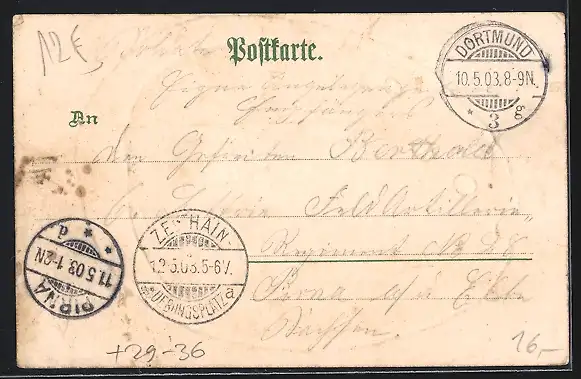 12€
Postkarte.
DORTMUND
10.5.03.8-9N.
* 3 g
Eigene Angelegenheit
An
den Gefreiten Berthold
6. Batterie Feld Artillerie
Regiment No 28
Pirna a/d Elbe
Sachsen.
ZEITHAIN
12.5.03.5-6V.
(TRUPPEN-UEBUNGSPLATZ) a
PIRNA
11.5.03.1-2N
* * p
+29-36
16,-